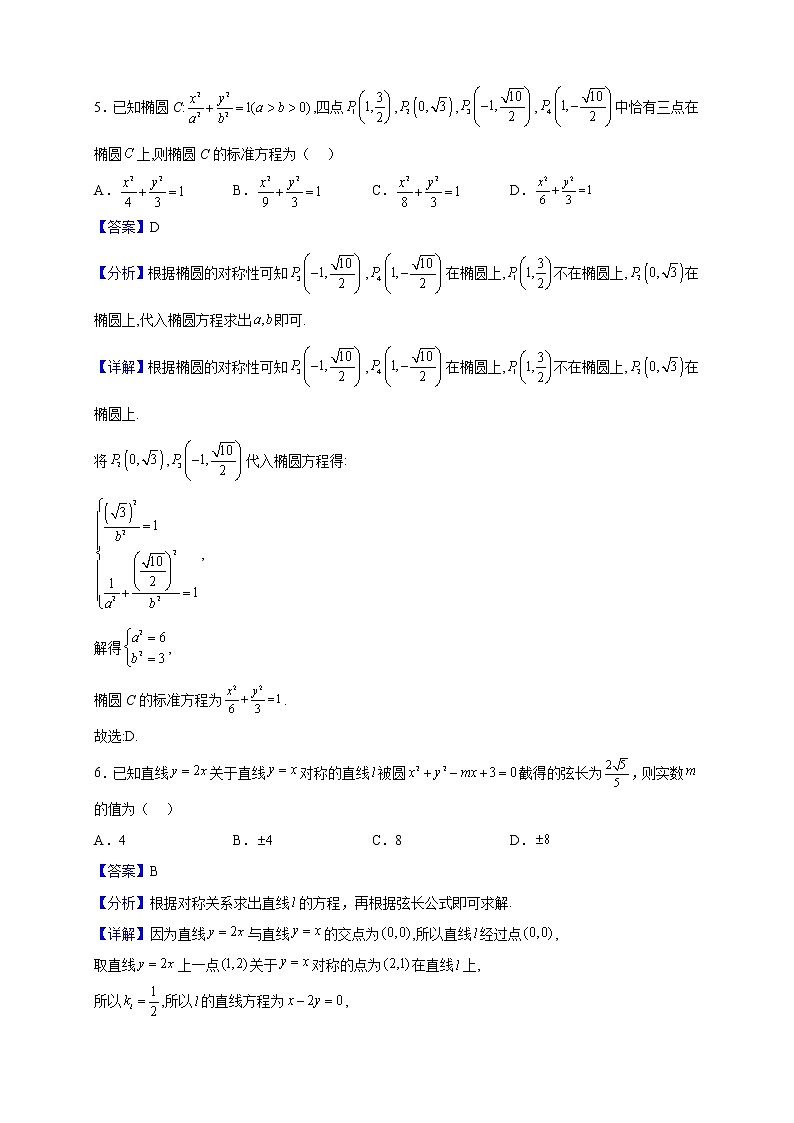 5.已知椭圆 C: x²/a² + y²/b² = 1(a > b > 0) ,四点 P₁(1, 3/2) , P₂(0, √3) , P₃(−1, √10/2) , P₄(1, −√10/2) 中恰有三点在
椭圆 C 上,则椭圆 C 的标准方程为( )
A. x²/4 + y²/3 = 1 B. x²/9 + y²/3 = 1 C. x²/8 + y²/3 = 1 D. x²/6 + y²/3 = 1
【答案】D
【分析】根据椭圆的对称性可知 P₃(−1, √10/2) , P₄(1, −√10/2) 在椭圆上, P₁(1, 3/2) 不在椭圆上, P₂(0, √3) 在
椭圆上,代入椭圆方程求出 a,b 即可.
【详解】根据椭圆的对称性可知 P₃(−1, √10/2) , P₄(1, −√10/2) 在椭圆上, P₁(1, 3/2) 不在椭圆上, P₂(0, √3) 在
椭圆上.
将 P₂(0, √3) , P₃(−1, √10/2) 代入椭圆方程得:
{ (√3)²/b² = 1
1/a² + (√10/2)²/b² = 1 ,
解得 { a² = 6
b² = 3 ,
椭圆 C 的标准方程为 x²/6 + y²/3 = 1 .
故选:D.
6.已知直线 y = 2x 关于直线 y = x 对称的直线 l 被圆 x² + y² − mx + 3 = 0 截得的弦长为 2√5/5 ,则实数 m
的值为( )
A.4 B.±4 C.8 D.±8
【答案】B
【分析】根据对称关系求出直线 l 的方程，再根据弦长公式即可求解.
【详解】因为直线 y = 2x 与直线 y = x 的交点为 (0,0) ,所以直线 l 经过点 (0,0) ,
取直线 y = 2x 上一点 (1,2) 关于 y = x 对称的点为 (2,1) 在直线 l 上,
所以 kₗ = 1/2 ,所以 l 的直线方程为 x − 2y = 0 ,